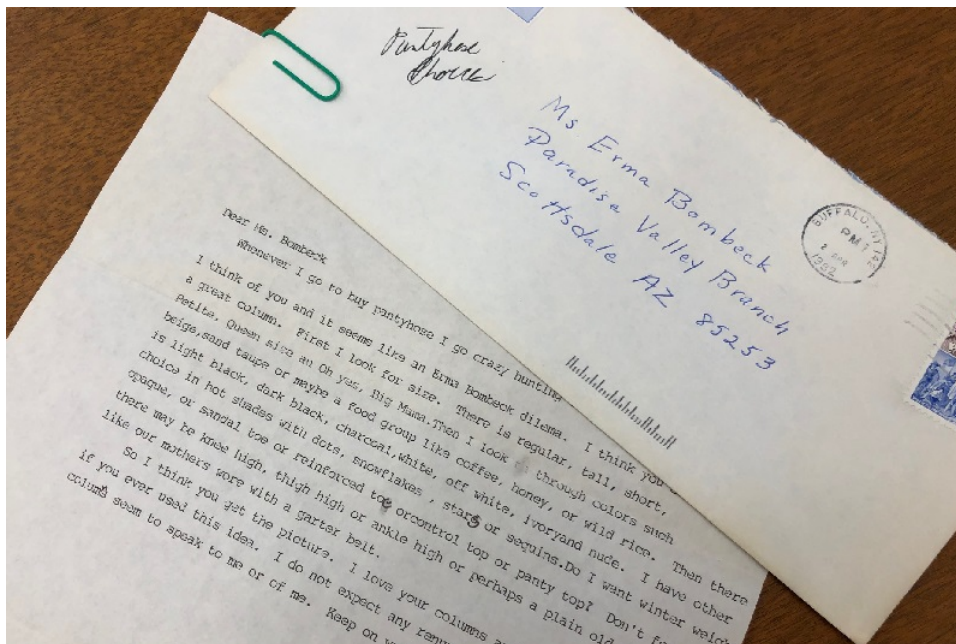 Pantyhose
Ms. Erma Bombeck
Paradise Valley Branch
Scottsdale AZ 85253
BUFFALO, NY 142
PM
2 APR
1992
Dear Ms. Bombeck
Whenever I go to buy pantyhose I go crazy hunting
I think of you and it seems like an Erma Bombeck dilema. I think you
a great column. First I look for size. There is regular, tall, short,
Petite, Queen size an Oh yes, Big Mama.Then I look through colors such
beige,sand taupe or maybe a food group like coffee, honey, or wild rice. Then there
is light black, dark black, charcoal,white, off white, ivoryand nude. I have other
choice in hot shades with dots, snowflakes , stars or sequins.Do I want winter weigh
opaque, or sandal toe or reinforced toe orcontrol top or panty top? Don't
there may be knee high, thigh high or ankle high or perhaps a plain old
like our mothers wore with a garter belt.
So I think you get the picture. I love your columns
if you ever used this idea. I do not expect any
colums seem to speak to me or of me. Keep on